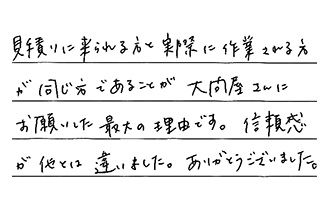 見積りに来られる方と実際に作業される方
が同じ方であることが大問屋さんに
お願いした最大の理由です。信頼感
が他とは違いました。ありがとうございました。